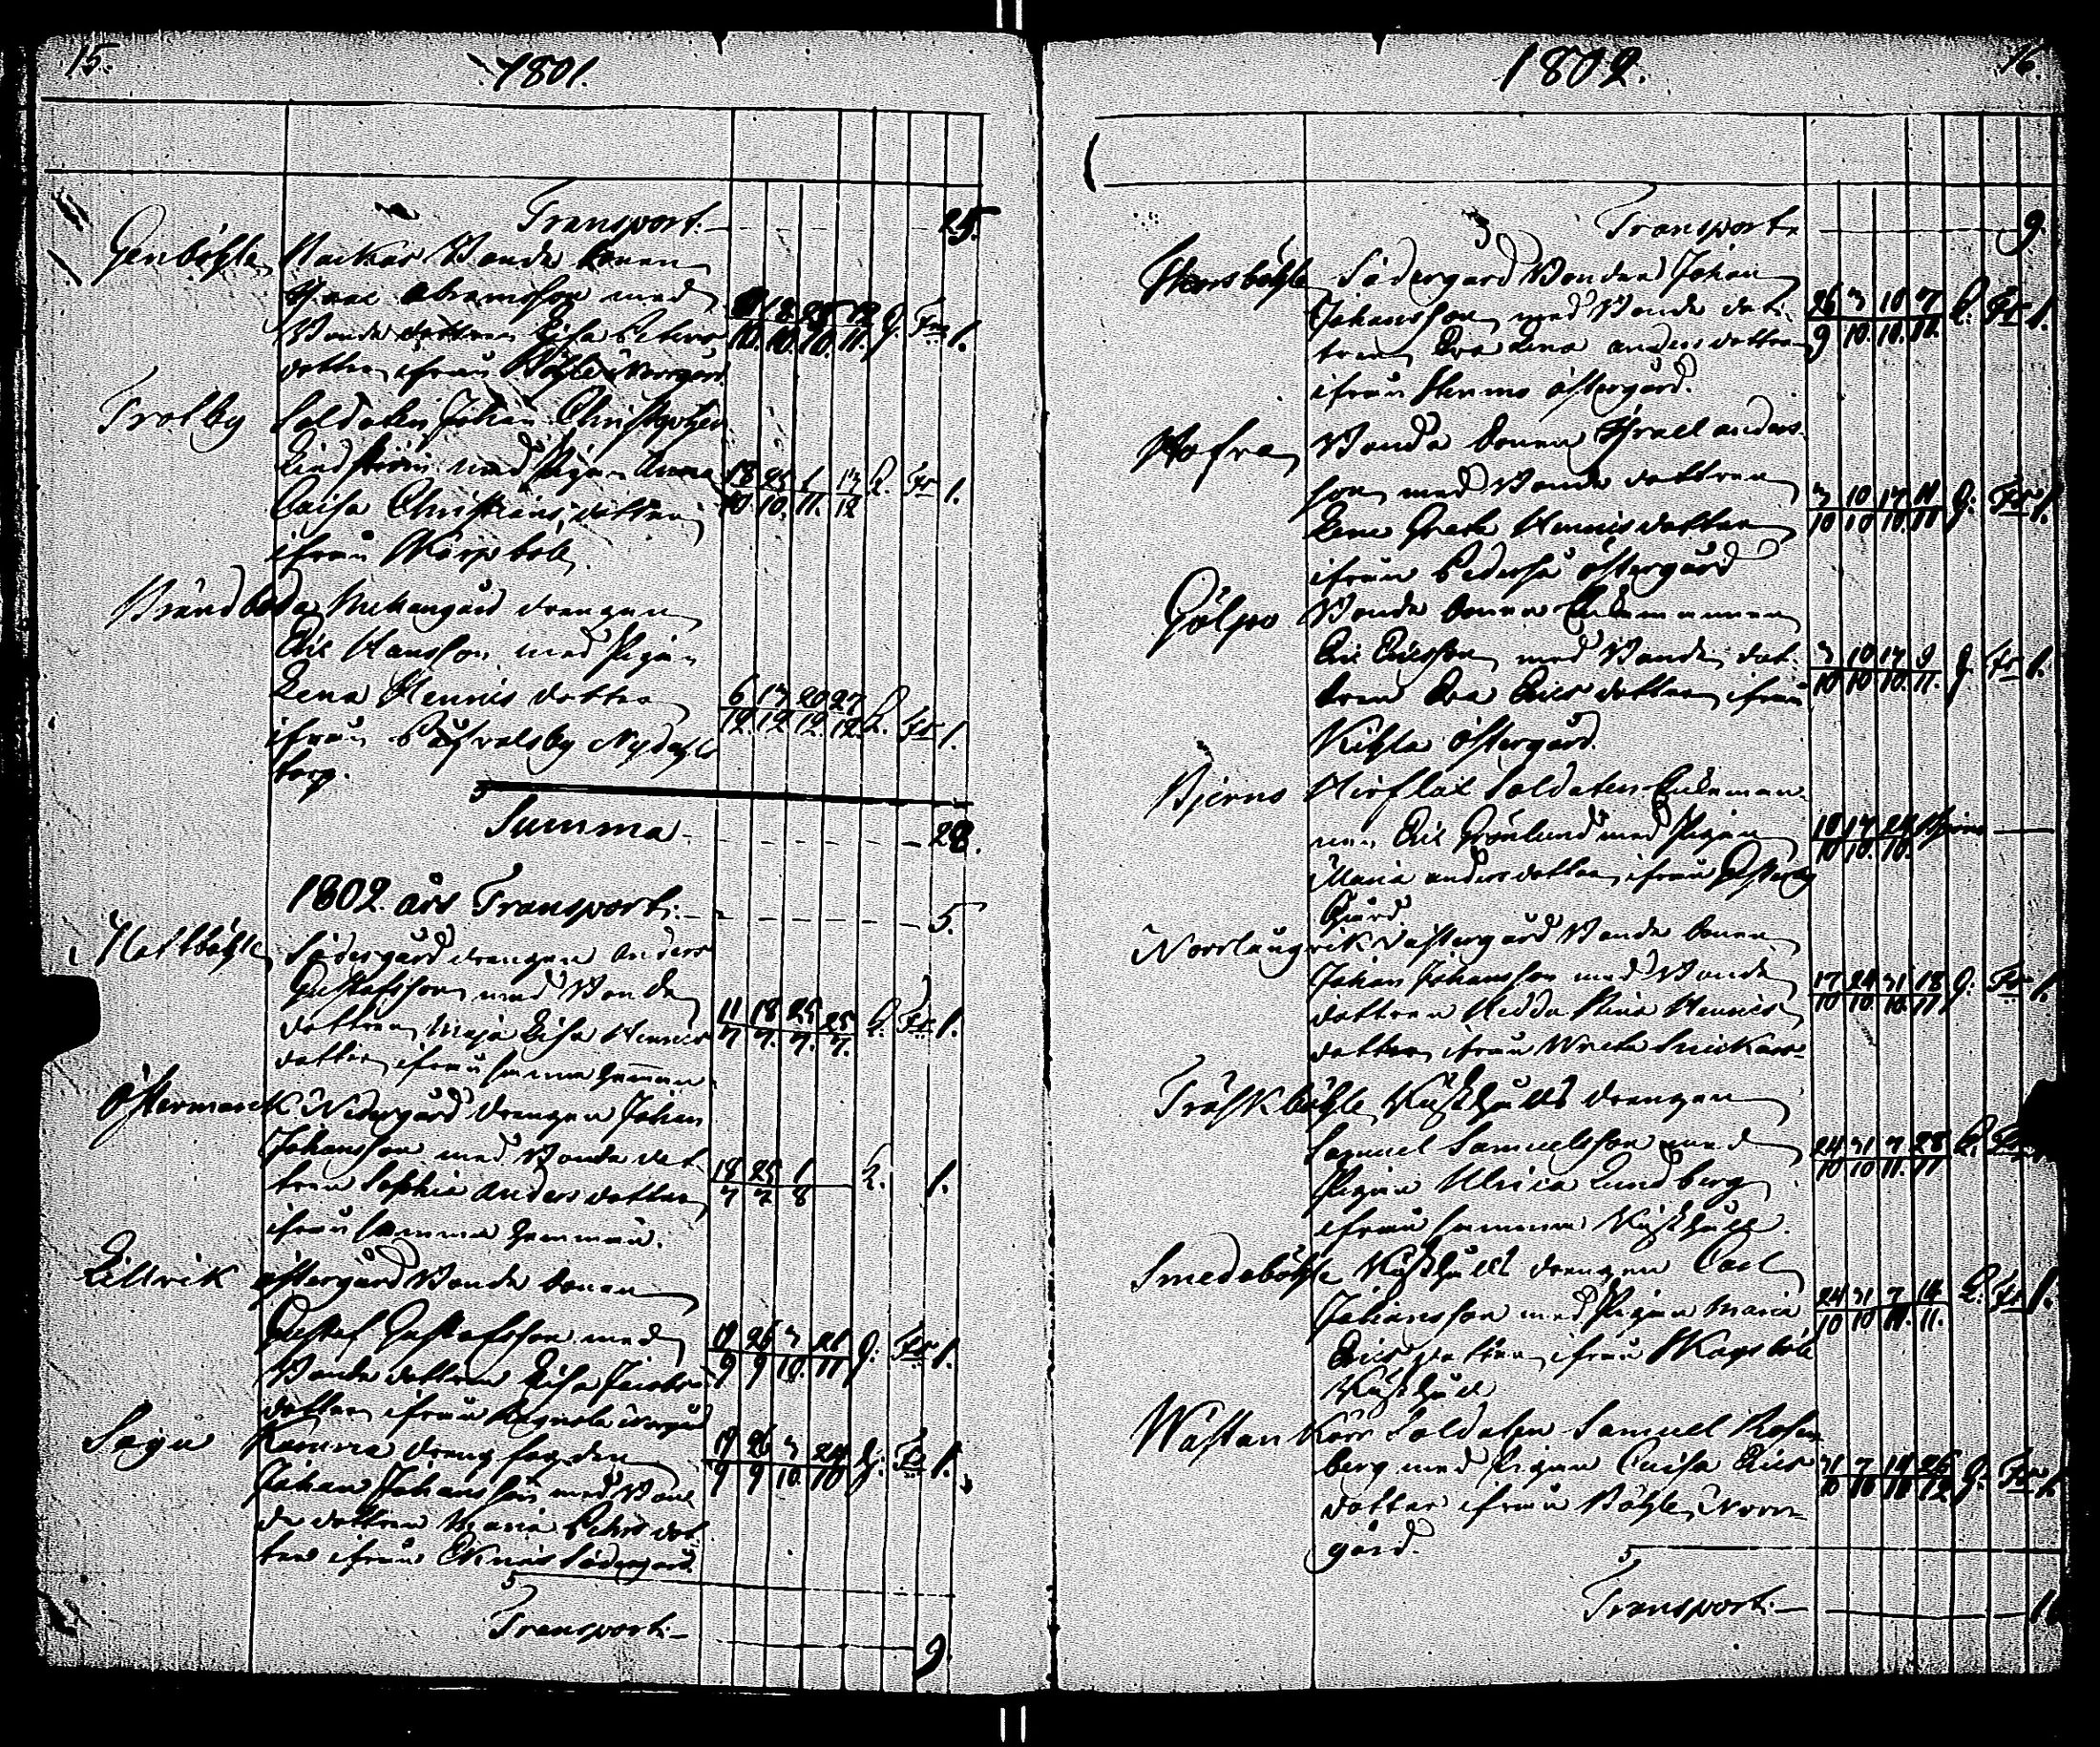 15.
1801.
Transport. 25.
Genböhle Backas Bonde sonen
Israel Abramsson med
Bonde dottren Lisa Peters
dotter ifrån Böhle Norrgård
18 25 12 G. Fr 1.
10. 10. 10. 11.
Trotby Soldaten Johan Christopher
Lindström med Pigan Anna
Caisa Christiens dotter
ifrån Skarpbole
18 25 1 13 L. Fr 1.
10. 10. 11. 12
Brändboda Mickaugård drengen
Eric Hansson med Pigan
Lena Hennis dotter
ifrån
6 13 20 27 L. Fr 1.
12. 12 12. 12.
borg.
Summa 28.
1802. års Transport. 5.
Mattböhle Södergård drengen Anders
Gustafsson med Bonde
dottren Maja Lisa Hennis
dotter ifrån samma hemman
11 18 25 25 L. Fr 1.
7 7. 7. 7.
Östermark Nedergård drengen Johan
Johansson med Bonde dot
tren Sophia Anders dotter
ifrån samma hemman.
18 25 1 L. 1.
7 7 8
Lillvik Östergård Bonde sonen
Gustaf Gustafsson med
Bonde dottren Lisa Jacobs
dotter ifrån Norrgård
19 26 3 21 G. Fr 1.
9 9 10. 11
Sagu dreng
Johan Johansson med Bon
de dottren Maria Pehrs dot
ter ifrån Eknäs Södergård.
19 26 3 24 G. Fr 1.
9 9 10. 10
Transport. 9.
1802.
16.
Transport. 9.
Stensböhle Södergård Bonden Johan
Johansson med Bonde dot
tren Eva Lena Anders dotter
ifrån Stenmo Östergård.
26 3 10 7 L. Fr 1.
9 10. 10. 11.
Hafra Bonde sonen Israel Anders
son med Bonde dottren
Lena Greta Hennis dotter
ifrån Pederså Östergård
3 10 17 11 G. Fr 1.
10 10 10. 11
Gölpo Bonde sonen Enkemannen
Eric Ericsson med Bonde dot
tren Eva Erics dotter ifrån
Kihla Östergård.
3 10 17 9 G. Fr 1.
10 10 10. 11.
Bjerno Soldaten Enkeman
nen Eric Grönlund med Pigan
Maria Anders dotter ifrån Österby
Gård.
10 17 24
10 10. 10.
Norrlångvik Västergård Bonde sonen
Johan Johansson med Bonde
dottren Hedda Stina Hennis
dotter ifrån Wreta Snickars
17 24 31 18 G. Fr 1.
10 10. 10. 11
Träskböhle Rusthålls drengen
Samuel Samuelsson med
Pigan Ulrica Lundberg
ifrån samma Rusthåll.
24 31 7 28 L. Fr
10 10 11. 11
Smedsböhle Rusthålls drengen Carl
Johansson med Pigan Maria
Erics dotter ifrån Skogsböle
Rusthåll
24 31 7 14 L. Fr 1.
10 10 11. 11.
Wästankärr Soldaten Samuel Rosen
berg med Pigan Caisa Erics
dotter ifrån Böhle Norr
gård.
31 7 14 26 G. Fr 1.
Transport.